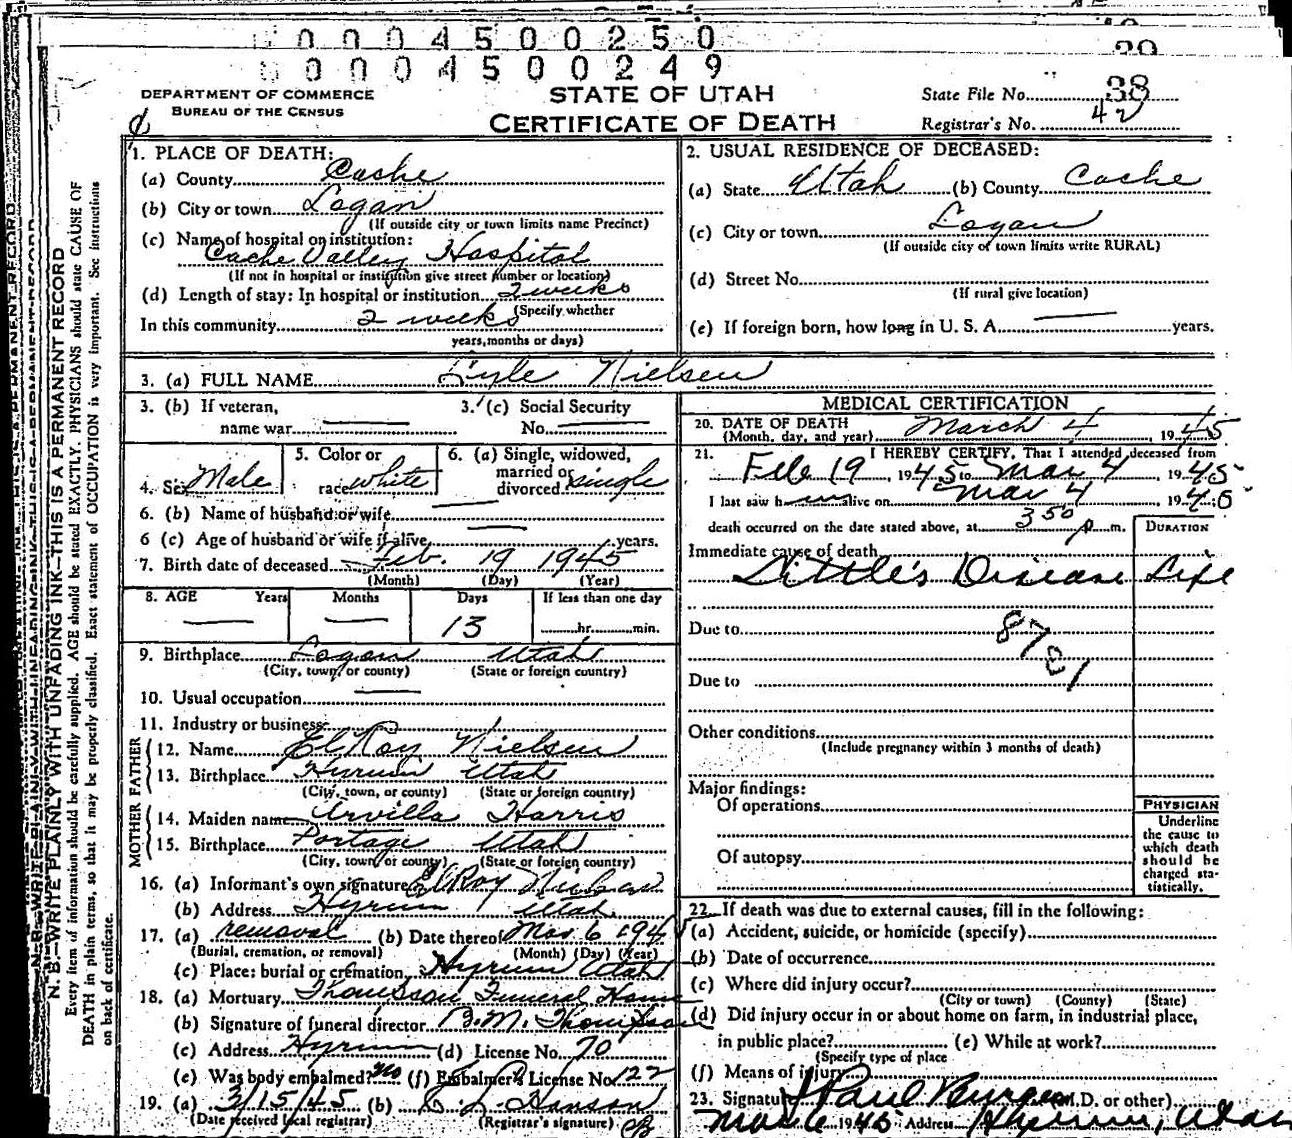 0 0 0 4 5 0 0 2 5 0
0 0 0 4 5 0 0 2 4 9
DEPARTMENT OF COMMERCE
BUREAU OF THE CENSUS
STATE OF UTAH
CERTIFICATE OF DEATH
State File No. 38
Registrar's No. 42
N. B.—WRITE PLAINLY WITH UNFADING INK—THIS IS A PERMANENT RECORD
Every item of information should be carefully supplied. AGE should be stated EXACTLY. PHYSICIANS should state CAUSE OF
DEATH in plain terms, so that it may be properly classified. Exact statement of OCCUPATION is very important. See instructions
on back of certificate.
1. PLACE OF DEATH:
(a) County Cache
(b) City or town Logan
(If outside city or town limits name Precinct)
(c) Name of hospital or institution:
Cache Valley Hospital
(If not in hospital or institution give street number or location)
(d) Length of stay: In hospital or institution 2 weeks
(Specify whether
In this community 2 weeks
years, months or days)
2. USUAL RESIDENCE OF DECEASED:
(a) State Utah (b) County Cache
(c) City or town Logan
(If outside city or town limits write RURAL)
(d) Street No.
(If rural give location)
(e) If foreign born, how long in U. S. A. — years.
3. (a) FULL NAME Lyle Nielsen
3. (b) If veteran,
name war —
3. (c) Social Security
No. —
4. Sex Male
5. Color or
race white
6. (a) Single, widowed,
married or
divorced single
6. (b) Name of husband or wife —
6 (c) Age of husband or wife if alive — years.
7. Birth date of deceased Feb. 19 1945
(Month) (Day) (Year)
8. AGE Years Months Days If less than one day
— — 13 hr. min.
9. Birthplace Logan Utah
(City, town, or county) (State or foreign country)
10. Usual occupation —
11. Industry or business
FATHER
12. Name ElRoy Nielsen
13. Birthplace Hyrum Utah
(City, town, or county) (State or foreign country)
MOTHER
14. Maiden name Arvilla Harris
15. Birthplace Portage Utah
(City, town or county) (State or foreign country)
16. (a) Informant's own signature ElRoy Nielsen
(b) Address Hyrum Utah
17. (a) removal (b) Date thereof Mar 6 194
(Burial, cremation, or removal) (Month) (Day) (Year)
(c) Place: burial or cremation Hyrum Utah
18. (a) Mortuary Thompson Funeral Home
(b) Signature of funeral director B. M. Thompson
(c) Address Hyrum (d) License No. 70
(e) Was body embalmed? no (f) Embalmer's License No. 122
19. (a) 3/15/45 (b) Hanson
(Date received local registrar) (Registrar's signature)
MEDICAL CERTIFICATION
20. DATE OF DEATH
(Month, day, and year) March 4, 1945
21. I HEREBY CERTIFY, That I attended deceased from
Feb 19, 1945 to Mar 4, 1945
I last saw him alive on Mar 4 1945
death occurred on the date stated above, at 3 50 p.m.
DURATION
Immediate cause of death
Little's Disease Life
Due to
8781
Due to
Other conditions
(Include pregnancy within 3 months of death)
Major findings:
Of operations
Of autopsy
PHYSICIAN
Underline
the cause to
which death
should be
charged sta-
tistically.
22. If death was due to external causes, fill in the following:
(a) Accident, suicide, or homicide (specify)
(b) Date of occurrence
(c) Where did injury occur?
(City or town) (County) (State)
(d) Did injury occur in or about home on farm, in industrial place,
in public place? (e) While at work?
(Specify type of place
(f) Means of injury
23. Signature J Paul Burgess (M.D. or other)
Mar 6 1945 Address Hyrum, Utah